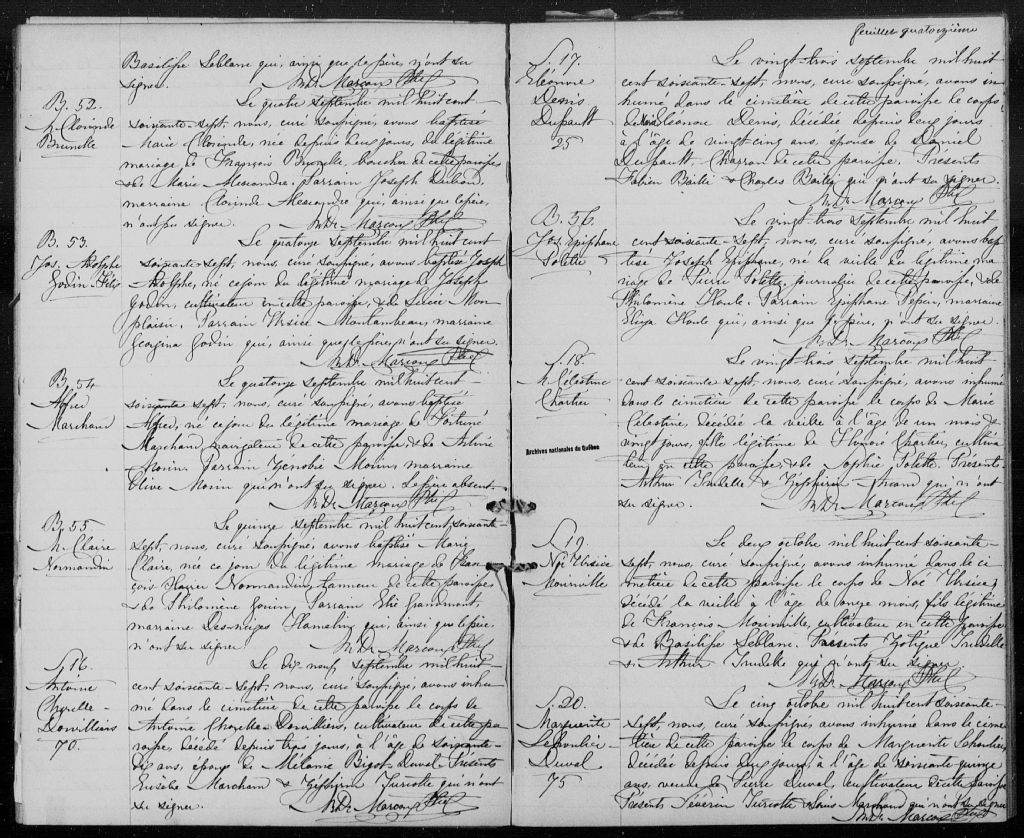 Basilisse Leblanc qui, ainsi que le père, n'ont su
signer. N. Dr. Marcoux Ptre
B. 52.
M. Clorinde
Brunelle
Le quatre septembre mil huit cent-
soixante-sept, nous, curé soussigné, avons baptisé
Marie Clorinde, née depuis deux jours, du légitime
mariage de François Brunelle, boucher de cette paroisse
& de Marie Alexandre. Parrain Joseph Dubord,
marraine Clorinde Alexandre qui, ainsi que le père,
n'ont pu signer. N. Dr. Marcoux Ptre
B. 53.
Jos. Adolphe
Godin
Le quatorze septembre mil huit cent
soixante-sept, nous, curé soussigné, avons baptisé Joseph
Adolphe, né ce jour du légitime mariage de Joseph
Godin, cultivateur en cette paroisse, & de Lucie Mon
plaisir. Parrain Ursice Montambeau, marraine
Georgina Godin qui, ainsi que le père, n'ont su signer.
N. Dr. Marcoux Ptre
B. 54
Alfred
Marchand
Le quatorze septembre mil huit cent-
soixante sept, nous, curé soussigné, avons baptisé
Alfred, né ce jour du légitime mariage de Fortuné
Marchand navigateur de cette paroisse & de
Morin. Parrain Zénobie Morin, marraine
Olive Morin qui n'ont su signer. Le père absent.
N. Dr. Marcoux Ptre
B. 55
M. Claire
Normandin
Le quinze septembre mil huit cent soixante-
sept, nous, curé soussigné avons baptisé Marie
Claire, née ce jour du légitime mariage de Fran
çois Xavier Normandin, tanneur de cette paroisse
& de Philomène Gouin. Parrain Elie Grandmont,
marraine Desneiges Hamelin qui, ainsi que le père,
n'ont su signer. N. Dr. Marcoux Ptre
S. 16.
Antoine
Chorette-
Donvilliers
70.
Le dix neuf septembre mil huit-
cent soixante-sept, nous, curé soussigné, avons inhu
mé dans le cimetière de cette paroisse le corps de
Antoine Chorette-Donvilliers, cultivateur de cette pa
roisse, décédé depuis trois jours, à l'âge de soixante-
dix ans, époux de Mélanie Bigot Duval. Présents
Eusèbe Marchand & Zéphirin Turcotte qui n'ont
su signer. N. Dr. Marcoux Ptre
feuillet quatorzième
S. 17.
Eléonore
Denis
Dupault
25
Le vingt-trois septembre mil huit
cent soixante-sept, nous, curé soussigné, avons in
humé dans le cimetière de cette paroisse le corps
de Eléonore Denis, décédée depuis deux jours
à l'âge de vingt cinq ans, épouse de Daniel
Dupault, charron de cette paroisse. Présents
Fabien Baril & Charles Baril qui n'ont su signer.
N. Dr. Marcoux Ptre
B. 56.
Jos. Epiphane
Tolette
Le vingt-trois septembre mil huit
cent soixante-sept, nous, curé soussigné, avons bap
tisé Joseph Epiphane, né la veille du légitime ma
riage de Pierre Tolette, journalier de cette paroisse, & de
Philomène Houle. Parrain Epiphane Pepin, marraine
Eliza Houle qui, ainsi que le père, n'ont su signer.
N. Dr. Marcoux Ptre
S. 18.
M. Célestine
Chartier
Le vingt-trois septembre mil huit-
cent soixante sept, nous, curé soussigné, avons inhumé
dans le cimetière de cette paroisse le corps de Marie
Célestine, décédée la veille à l'âge de un mois &
vingt jours, fille légitime de Honoré Chartier, cultiva
teur en cette paroisse, & de Sophie Tolette. Présents
Arthur Trudelle & Zéphirin qui n'ont
su signer. N. Dr. Marcoux Ptre
Archives nationales du Québec
S. 19.
Noé Ursice
Morinville
Le deux octobre mil huit cent soixante-
sept, nous, curé soussigné, avons inhumé dans le ci
metière de cette paroisse le corps de Noé Ursice,
décédé la veille à l'âge de onze mois, fils légitime
de François Morinville, cultivateur en cette paroisse
& de Basilisse Leblanc. Présents Zotique Trudelle
& Arthur Trudelle qui n'ont su signer.
N. Dr. Marcoux Ptre
S. 20.
Marguerite
Duval
75
Le cinq octobre mil huit cent soixante-
sept, nous, curé soussigné, avons inhumé dans le cime
tière de cette paroisse le corps de Marguerite
décédée depuis deux jours, à l'âge de soixante quinze
ans, veuve de Pierre Duval, cultivateur de cette paroisse
Présents Sévérin Turcotte & Louis Marchand qui n'ont su signer
N. Dr. Marcoux Ptre